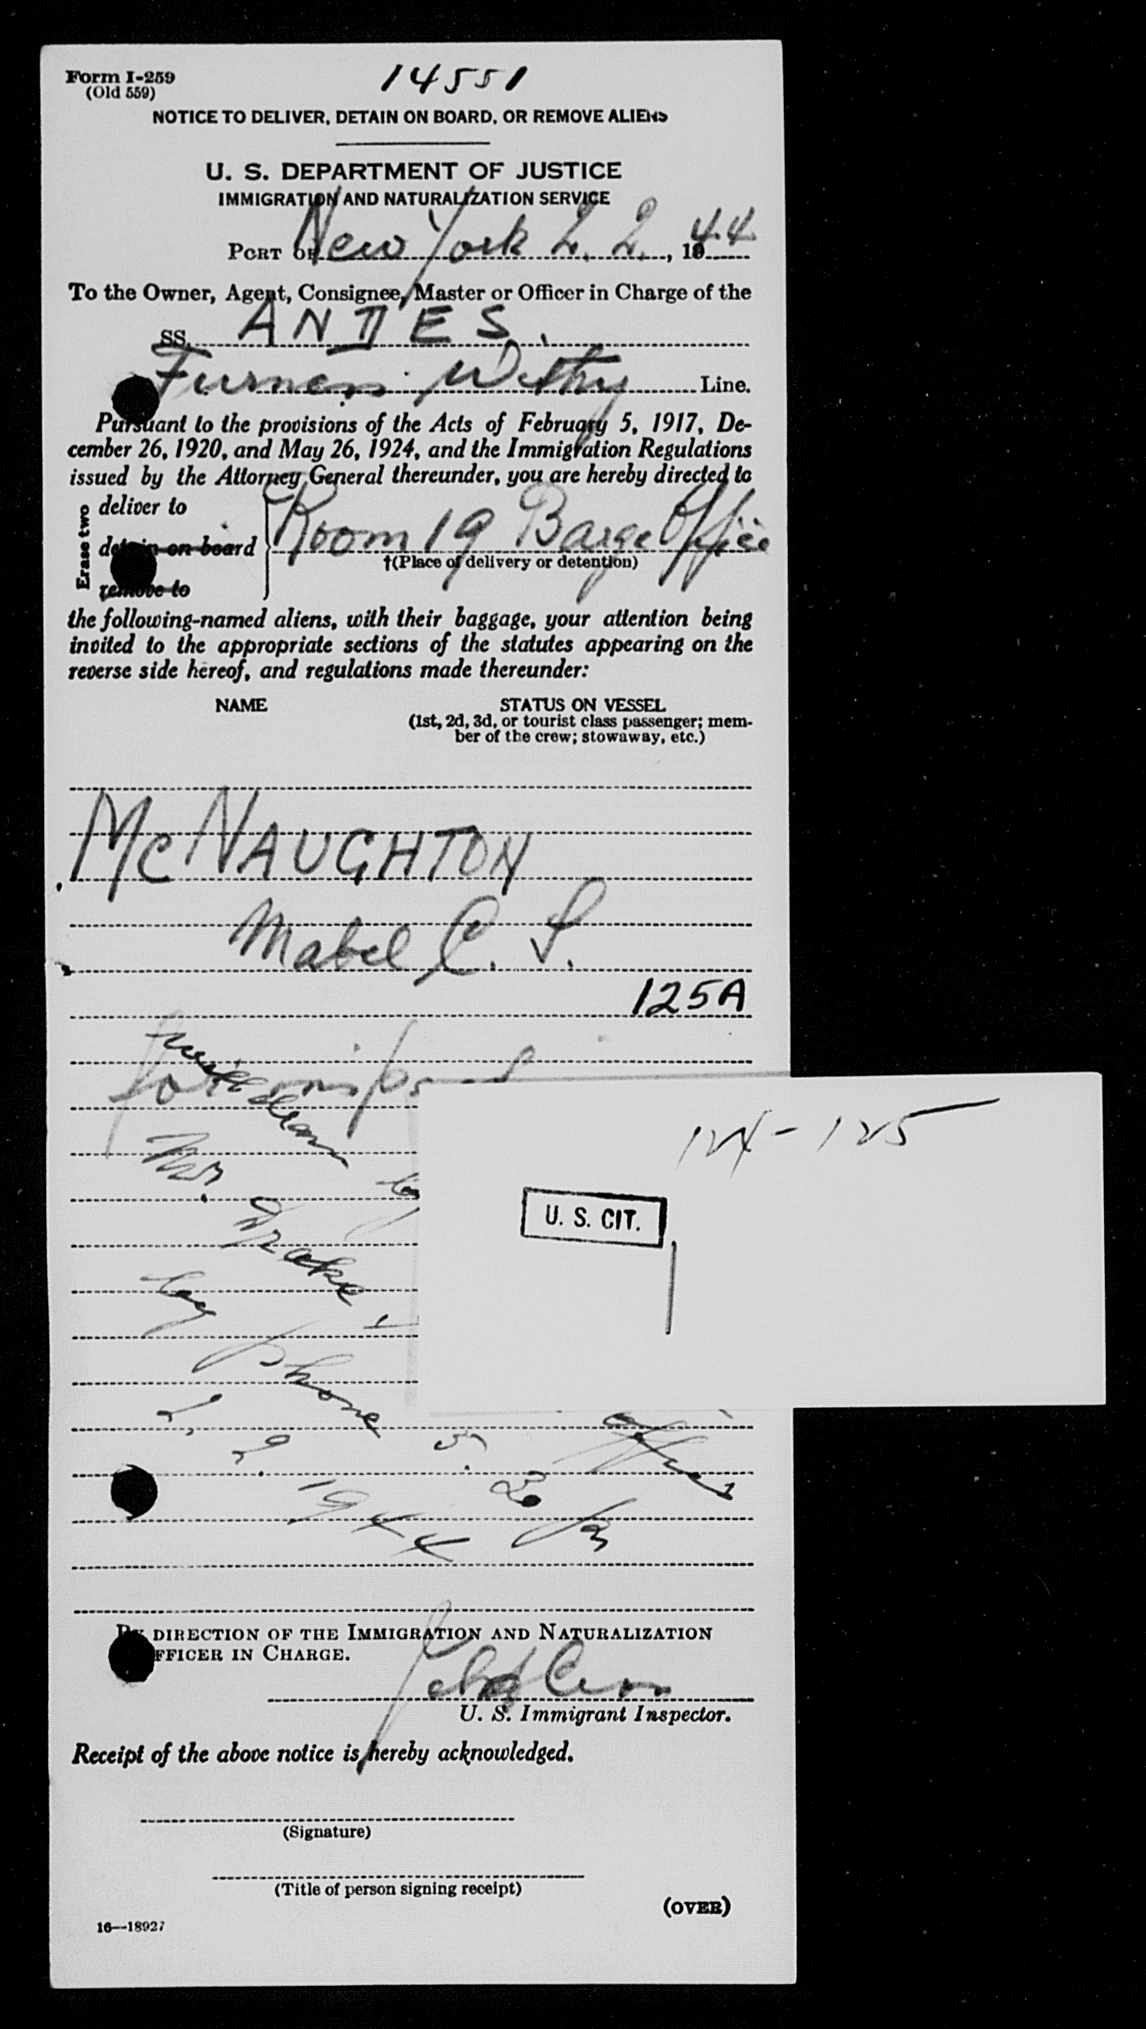 Form I-259
(Old 559)
14551
NOTICE TO DELIVER, DETAIN ON BOARD, OR REMOVE ALIENS
U. S. DEPARTMENT OF JUSTICE
IMMIGRATION AND NATURALIZATION SERVICE
PORT OF New York 2. 2., 1944
To the Owner, Agent, Consignee, Master or Officer in Charge of the
SS. ANDES.
Furness Withy Line.
Pursuant to the provisions of the Acts of February 5, 1917, De-
cember 26, 1920, and May 26, 1924, and the Immigration Regulations
issued by the Attorney General thereunder, you are hereby directed to
Erase two
deliver to
detain on board
remove to
Room 19 Barge Office
†(Place of delivery or detention)
the following-named aliens, with their baggage, your attention being
invited to the appropriate sections of the statutes appearing on the
reverse side hereof, and regulations made thereunder:
NAME
STATUS ON VESSEL
(1st, 2d, 3d, or tourist class passenger; mem-
ber of the crew; stowaway, etc.)
McNAUGHTON
Mabel C. S.
125A
for
Mr. Drake
by phone
2. 2. 1944
5. 30 p
office
124-125
U. S. CIT.
BY DIRECTION OF THE IMMIGRATION AND NATURALIZATION
OFFICER IN CHARGE.
U. S. Immigrant Inspector.
Receipt of the above notice is hereby acknowledged.
(Signature)
(Title of person signing receipt)
(OVER)
16—18927